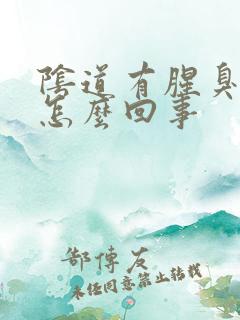 陰道有腥臭
怎麼回事
郜傳友
未經同意禁止轉載